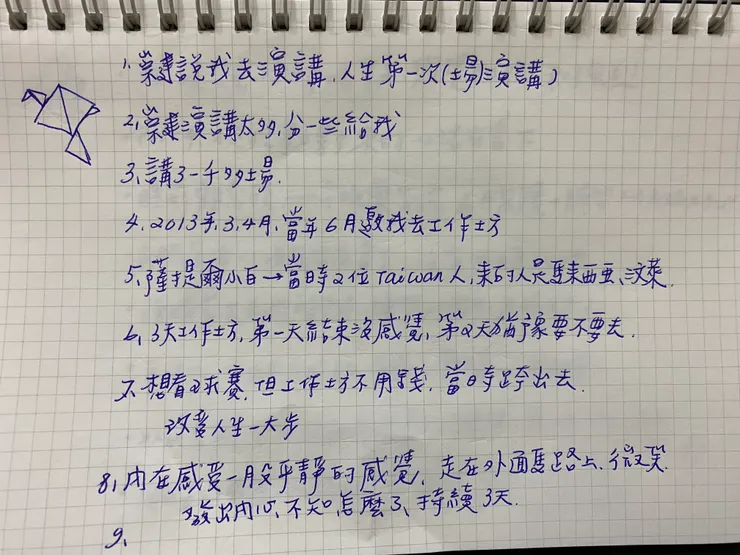 1. 崇建說我去演講,人生第一次(場)演講)
2. 崇建演講太多,分一些給我
3. 講了一千多場.
4. 2013年.3.4月,當年6月邀我去工作坊
5. 薩提爾小白→當時2位Taiwan人,來的人是馬來西亞、汶萊.
6. 3天工作坊,第一天結束沒感覺,第2天猶豫要不要去.
7. 想看球賽,但工作坊不用錢,當時跨出去.
改變人生一大步
8. 內在感受一股平靜的感覺,走在外面馬路上、微笑.
發出內心、不知怎麼了、持續3天.
9.